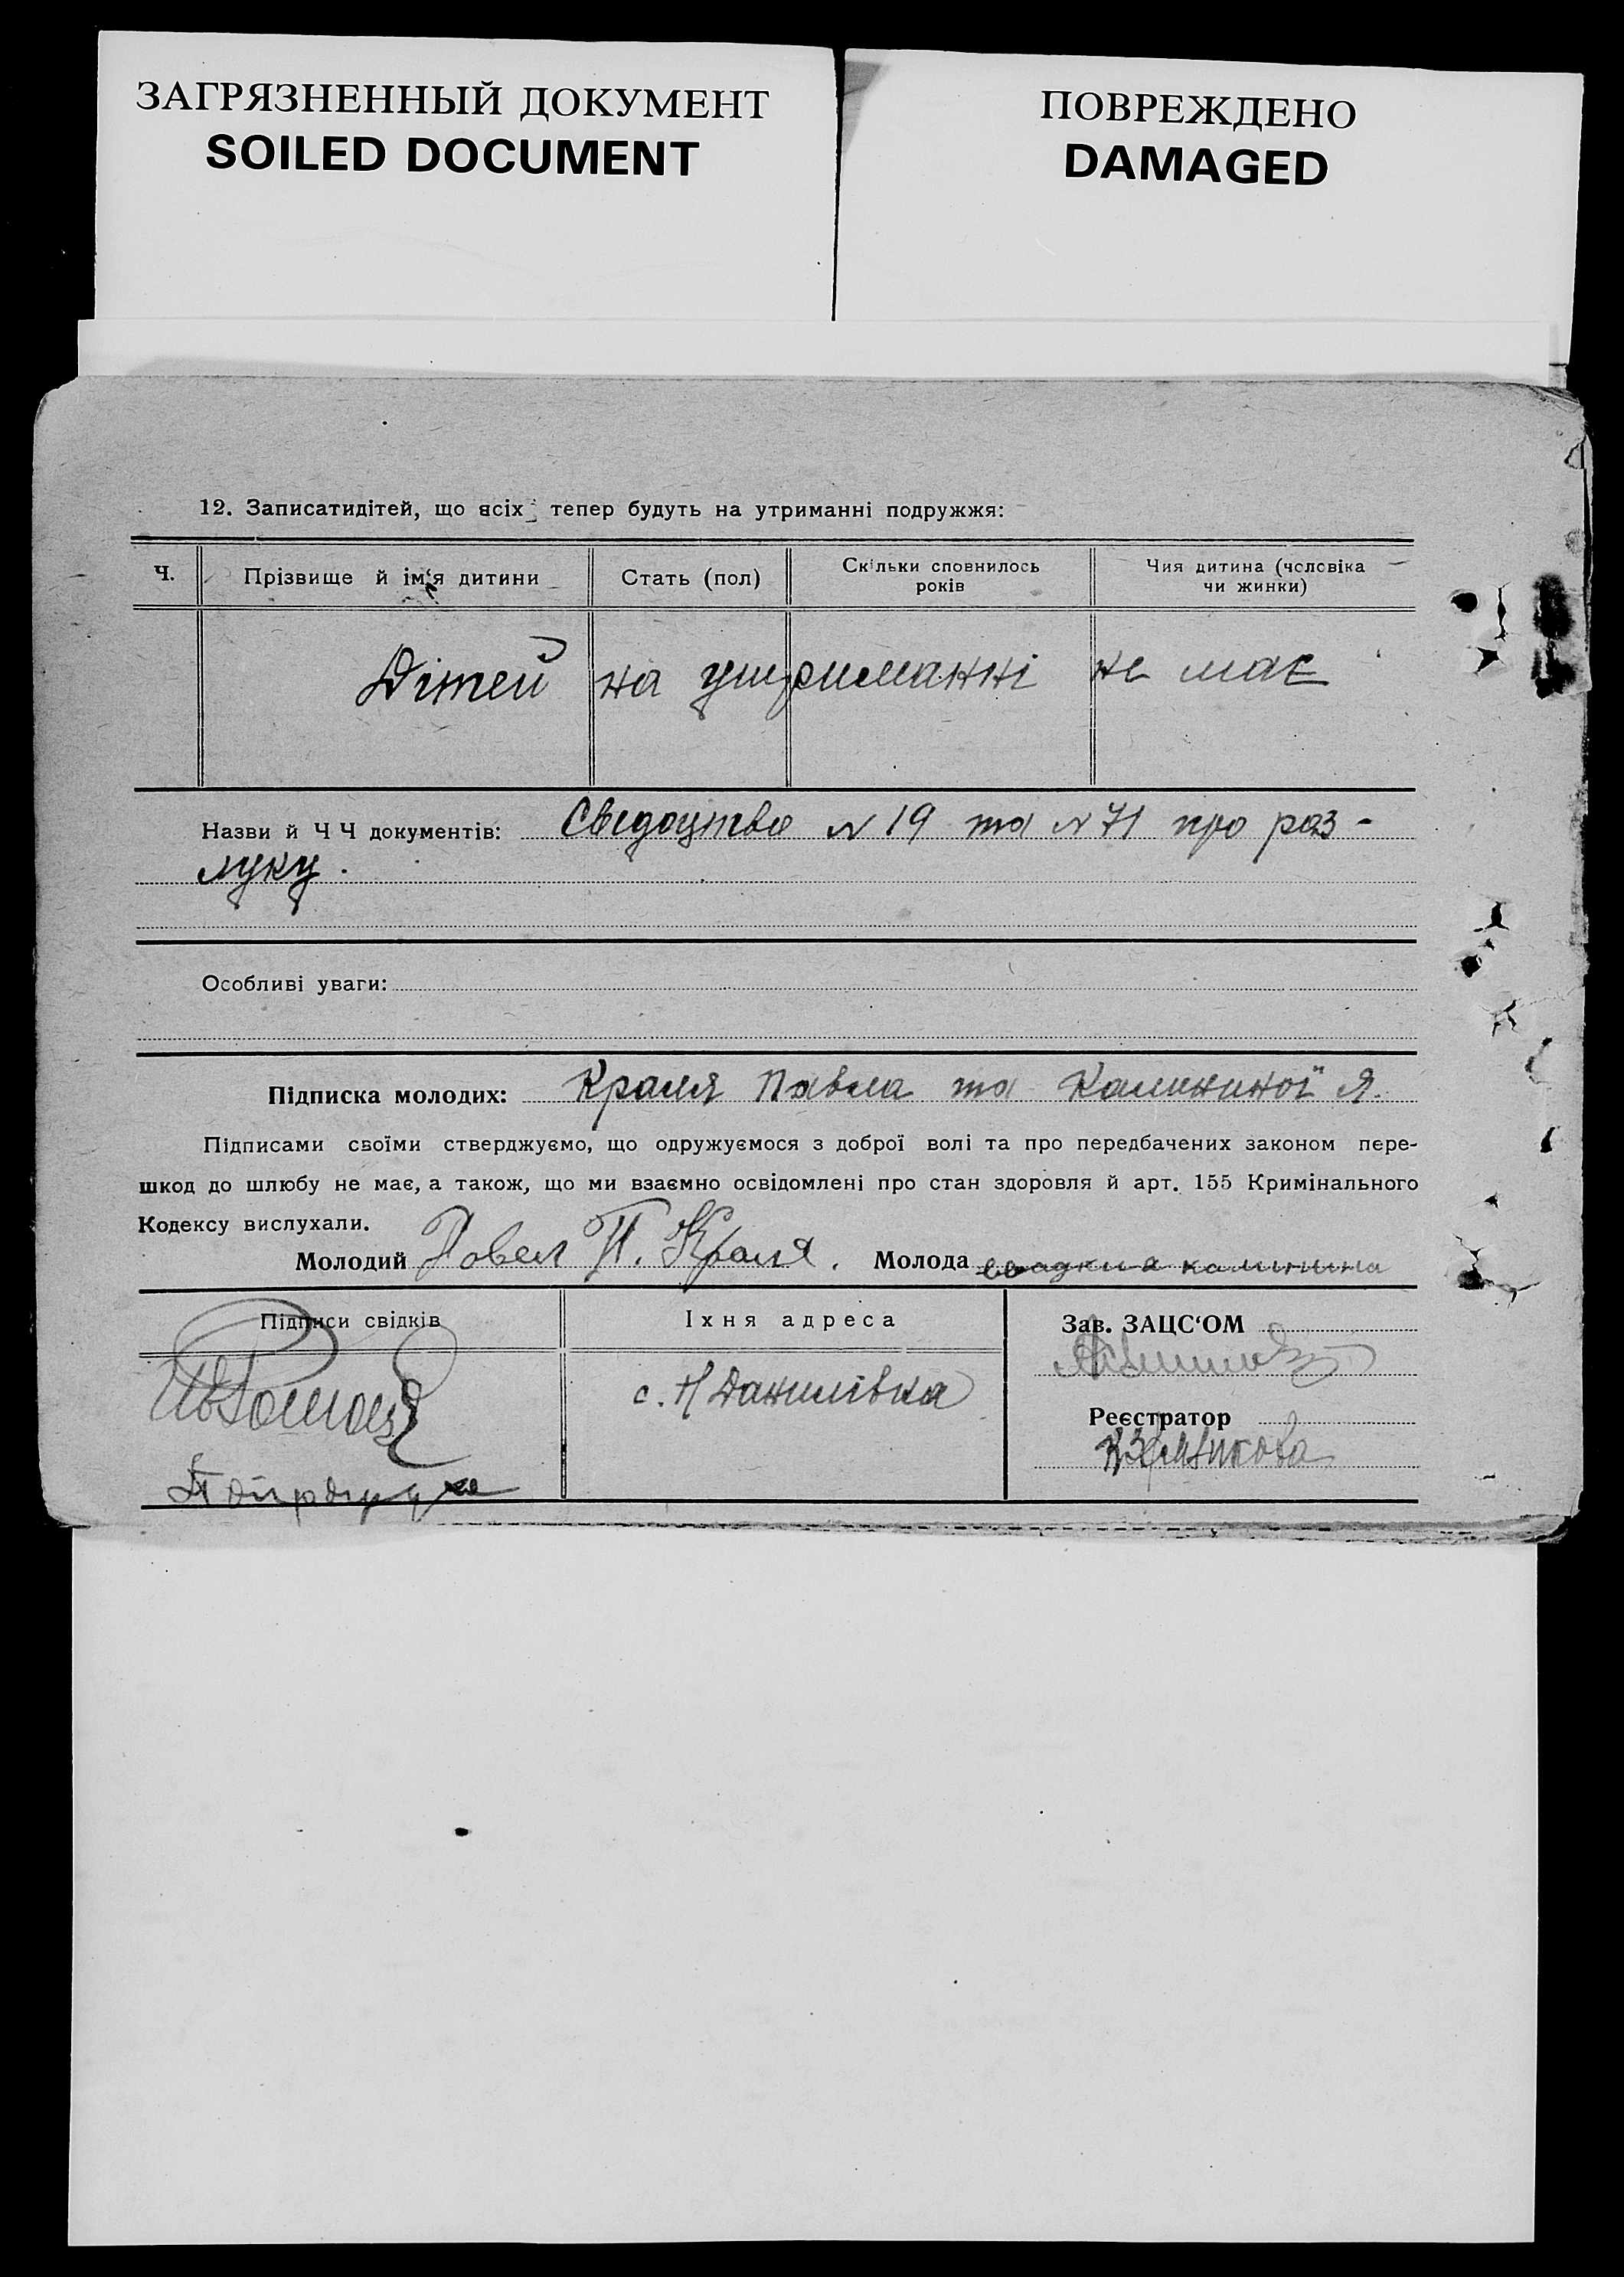 ЗАГРЯЗНЕННЫЙ ДОКУМЕНТ
SOILED DOCUMENT
ПОВРЕЖДЕНО
DAMAGED
12. Записатидітей, що всіх тепер будуть на утриманні подружжя:
Ч. Прізвище й ім'я дитини Стать (пол) Скільки сповнилось років Чия дитина (чоловіка чи жинки)
Дітей на утриманні не має
Назви й Ч Ч документів: Свідоцтво N 19 та N 71 про роз-
луку.
Особливі уваги:
Підписка молодих: Краля Павла та Калининої Я.
Підписами своїми стверджуємо, що одружуємося з доброї волі та про передбачених законом пере-
шкод до шлюбу не має, а також, що ми взаємно освідомлені про стан здоровля й арт. 155 Кримінального
Кодексу вислухали.
Молодий Павел П. Краля. Молода калинина
Підписи свідків Їхня адреса Зав. ЗАЦС'ОМ
с. Н Данилівка
Реєстратор